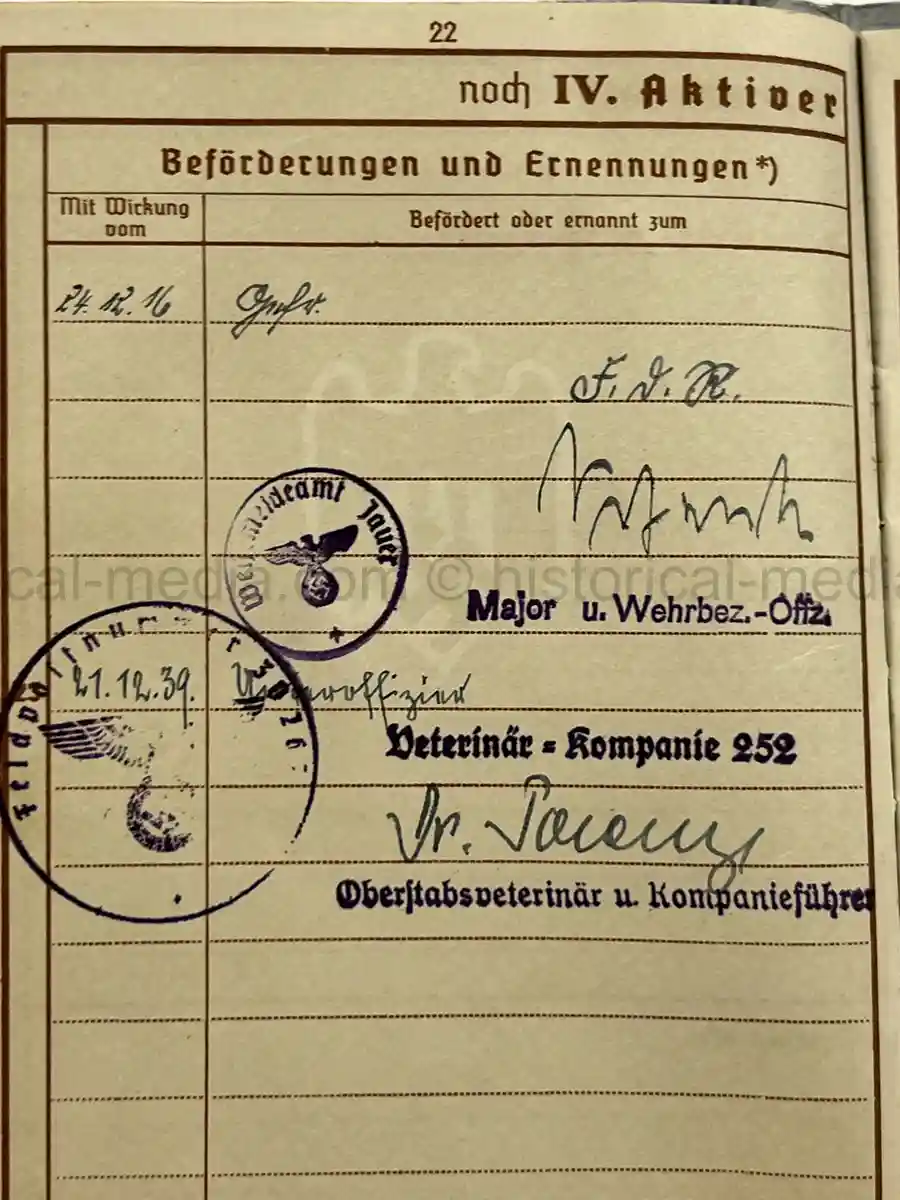 22
noch IV. Aktiver
Beförderungen und Ernennungen*)
Mit Wirkung vom
Befördert oder ernannt zum
24.12.16 Gefr.
F. d. R.
Wehrmeldeamt Jauer
Major u. Wehrbez.-Offz.
cal-media.com © historical-media
Feldpostnummer
21.12.39. Unteroffizier
Veterinär=Kompanie 252
Dr. Lorenz
Oberstabsveterinär u. Kompanieführer